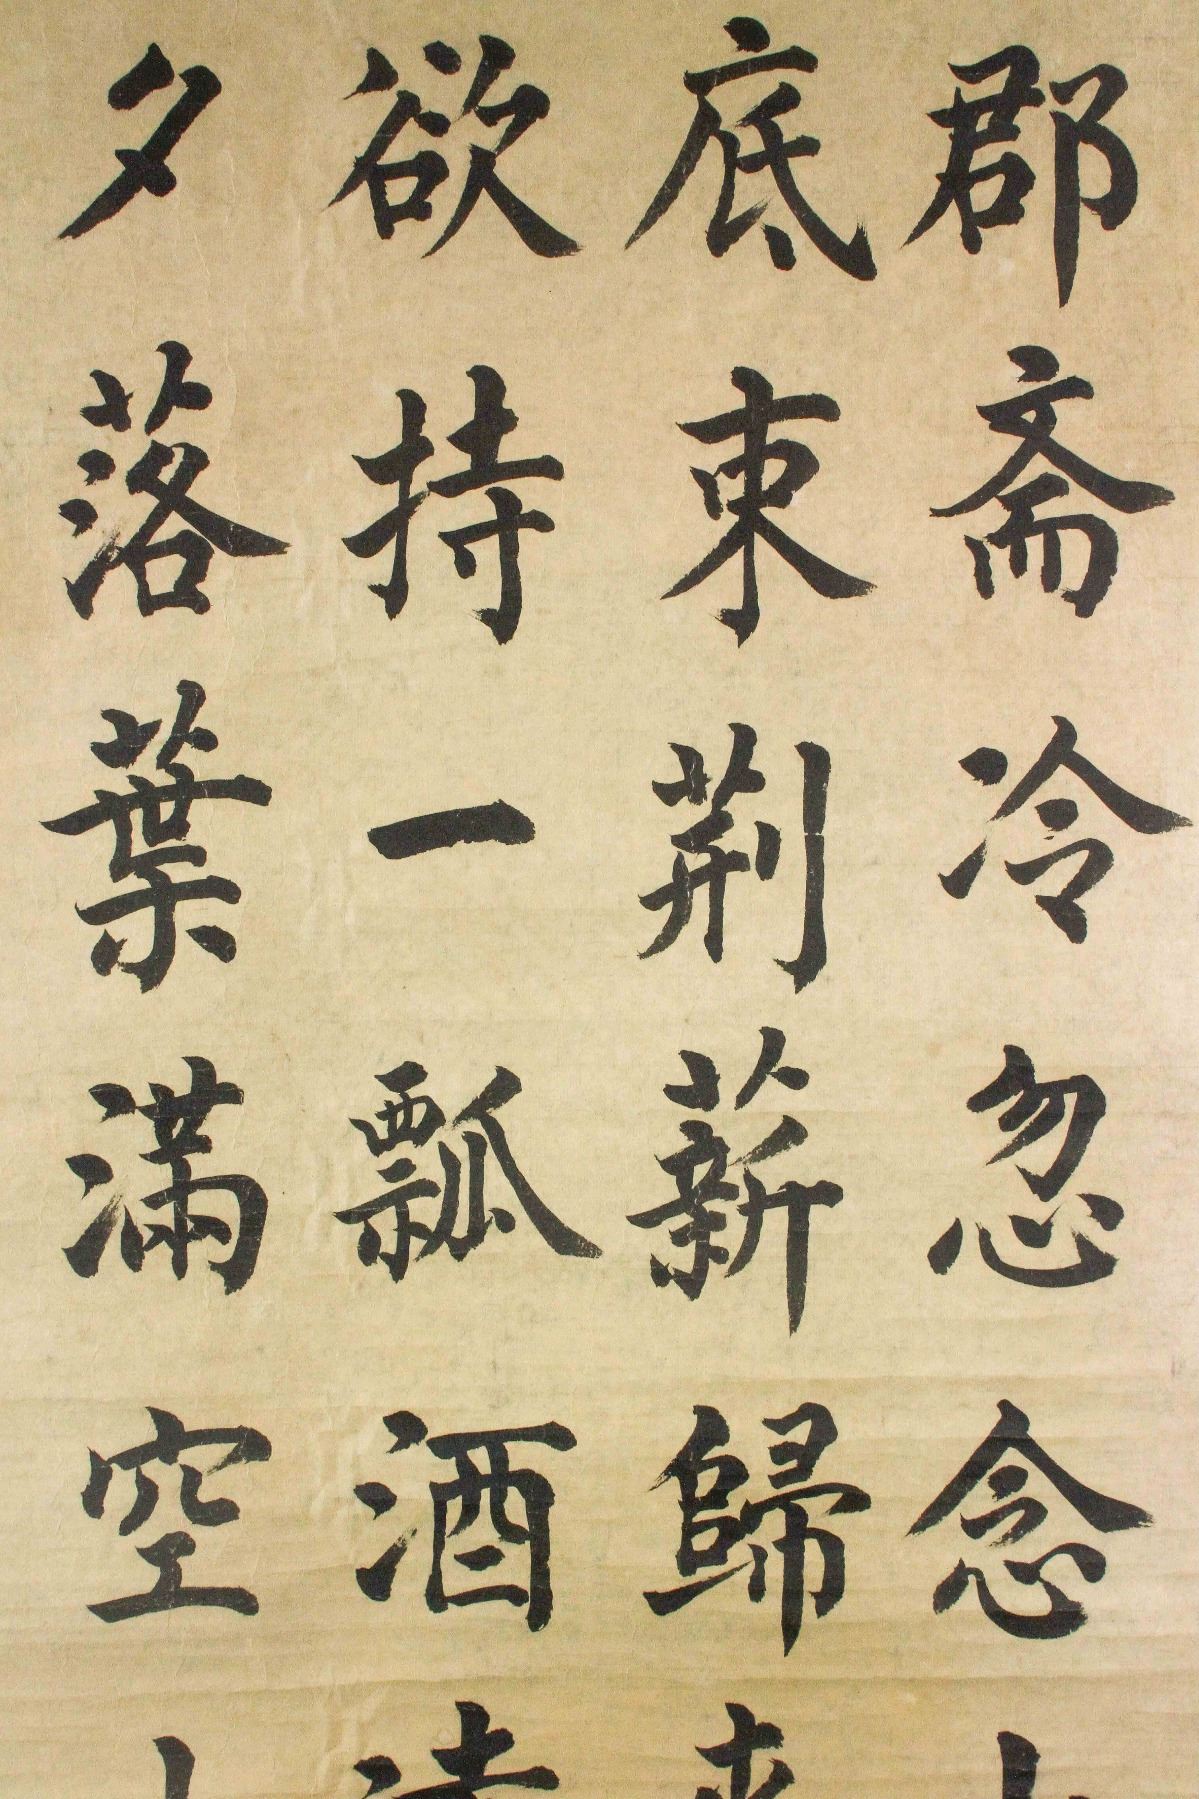 郡斋冷忽念
底束荆薪歸
欲持一瓢酒
夕落葉滿空